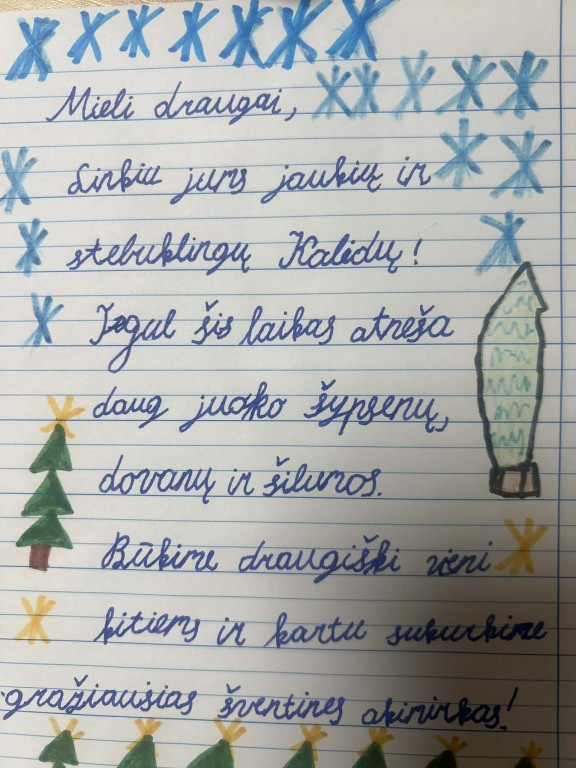 Mieli draugai,
Linkiu jums jaukių ir
stebuklingų Kalėdų!
Tegul šis laikas atneša
daug juoko šypsenų,
dovanų ir šilumos.
Būkime draugiški vieni
kitiems ir kartu sukurkime
gražiausias šventines akimirkas!